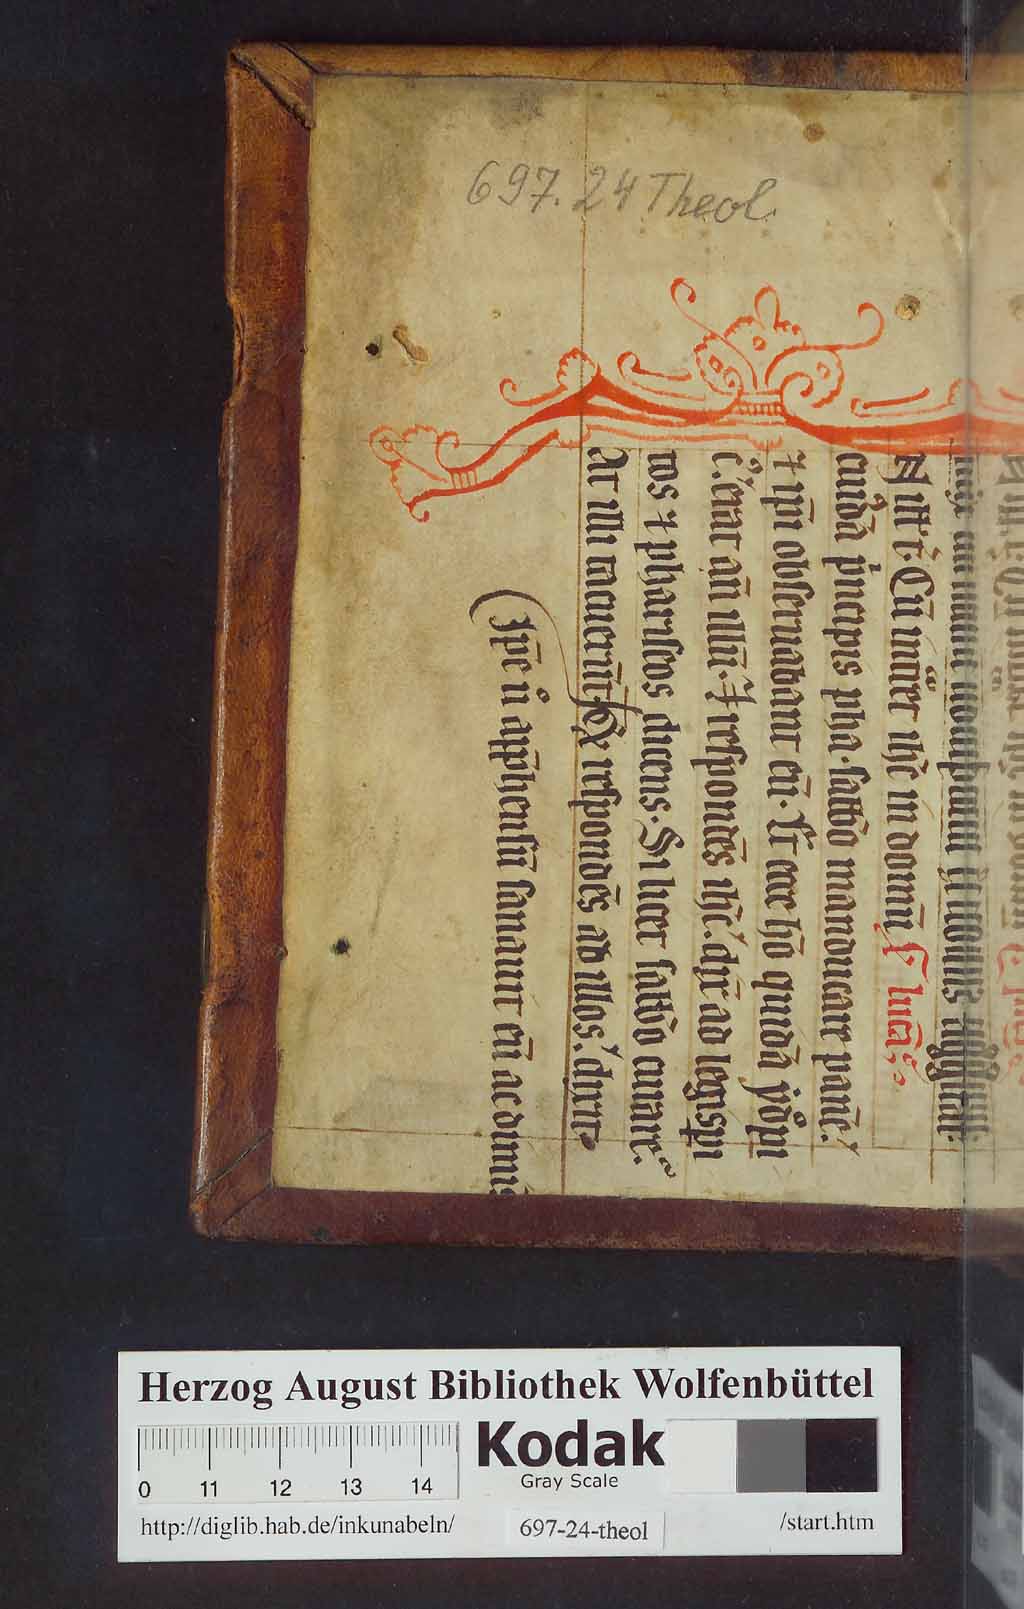 697. 24 Theol.
f lucā
N ill' t' Cū intrᷓet ihc̄ in domū
cuiᵈdā pᷓncipis pha. sabbō manducare panē.
⁊ ip̄i obseruabant eū. Et ecce hō quidā ydropi
c̄. erat an̄ illū. I respondēs ihc̄. dix̄ ad legispi
tos ⁊ phariseos dicens. Si licet sabbō curare.
At illi tacuerūt. Et respondēs ad illos. dixit
Ip̄e ů app̄hensū sanauit eū ac dimis
Herzog August Bibliothek Wolfenbüttel
0 11 12 13 14
Kodak
Gray Scale
http://diglib.hab.de/inkunabeln/ 697-24-theol /start.htm